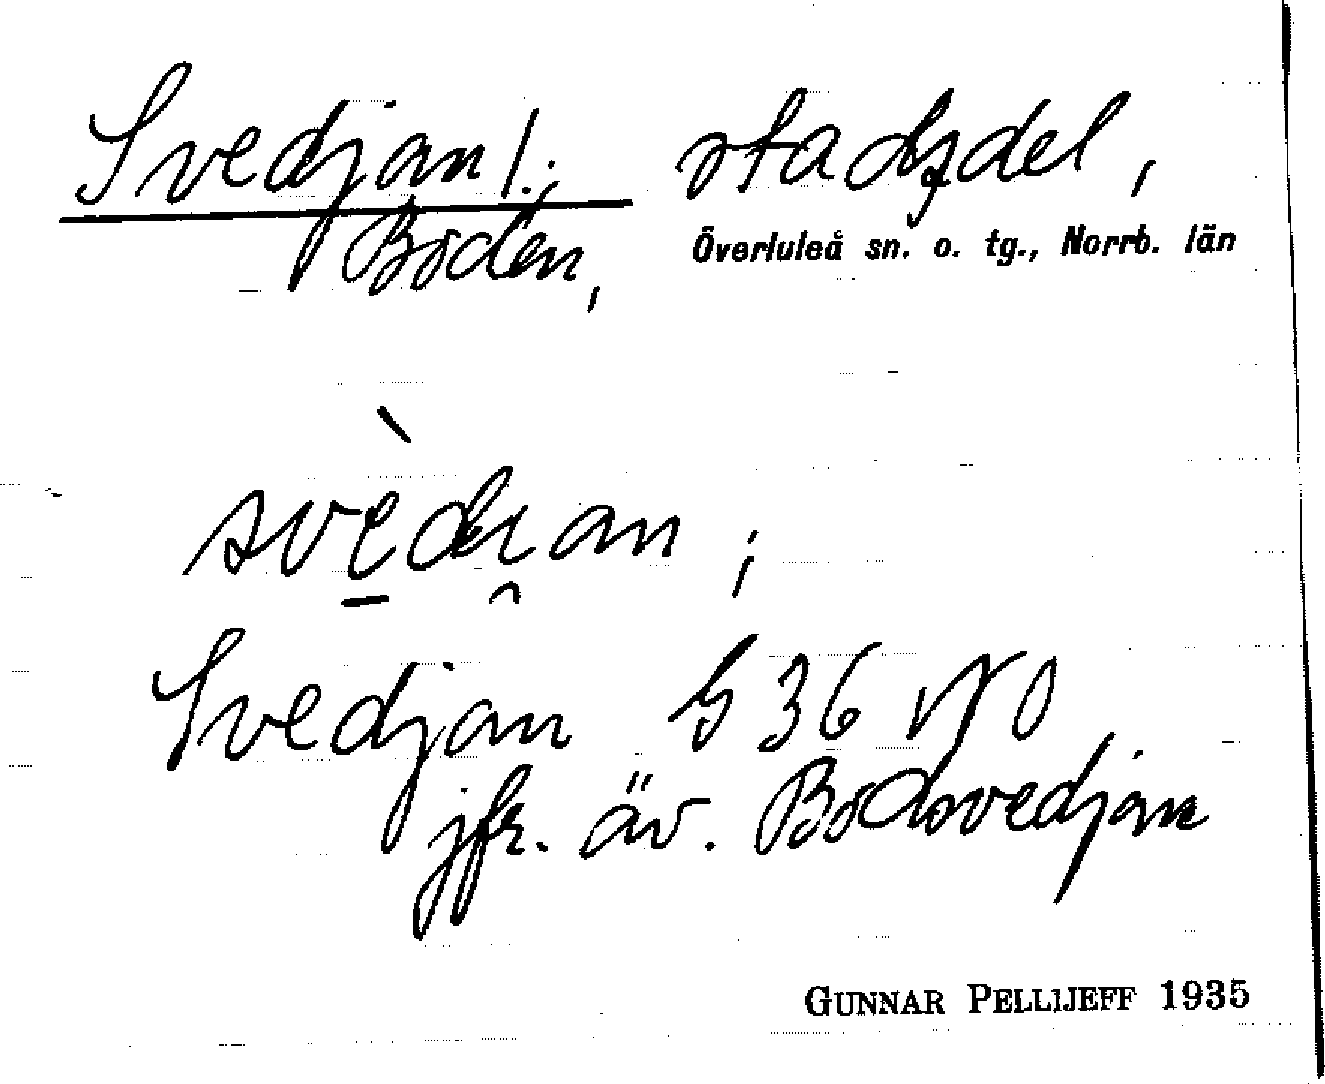 Svedjan!; stadsdel,
Boden, Överluleå sn. o. tg., Norrb. län
svèdi̯an ;
Svedjan G 36 NO
jfr. äv. Bodsvedjan
GUNNAR PELLIJEFF 1935